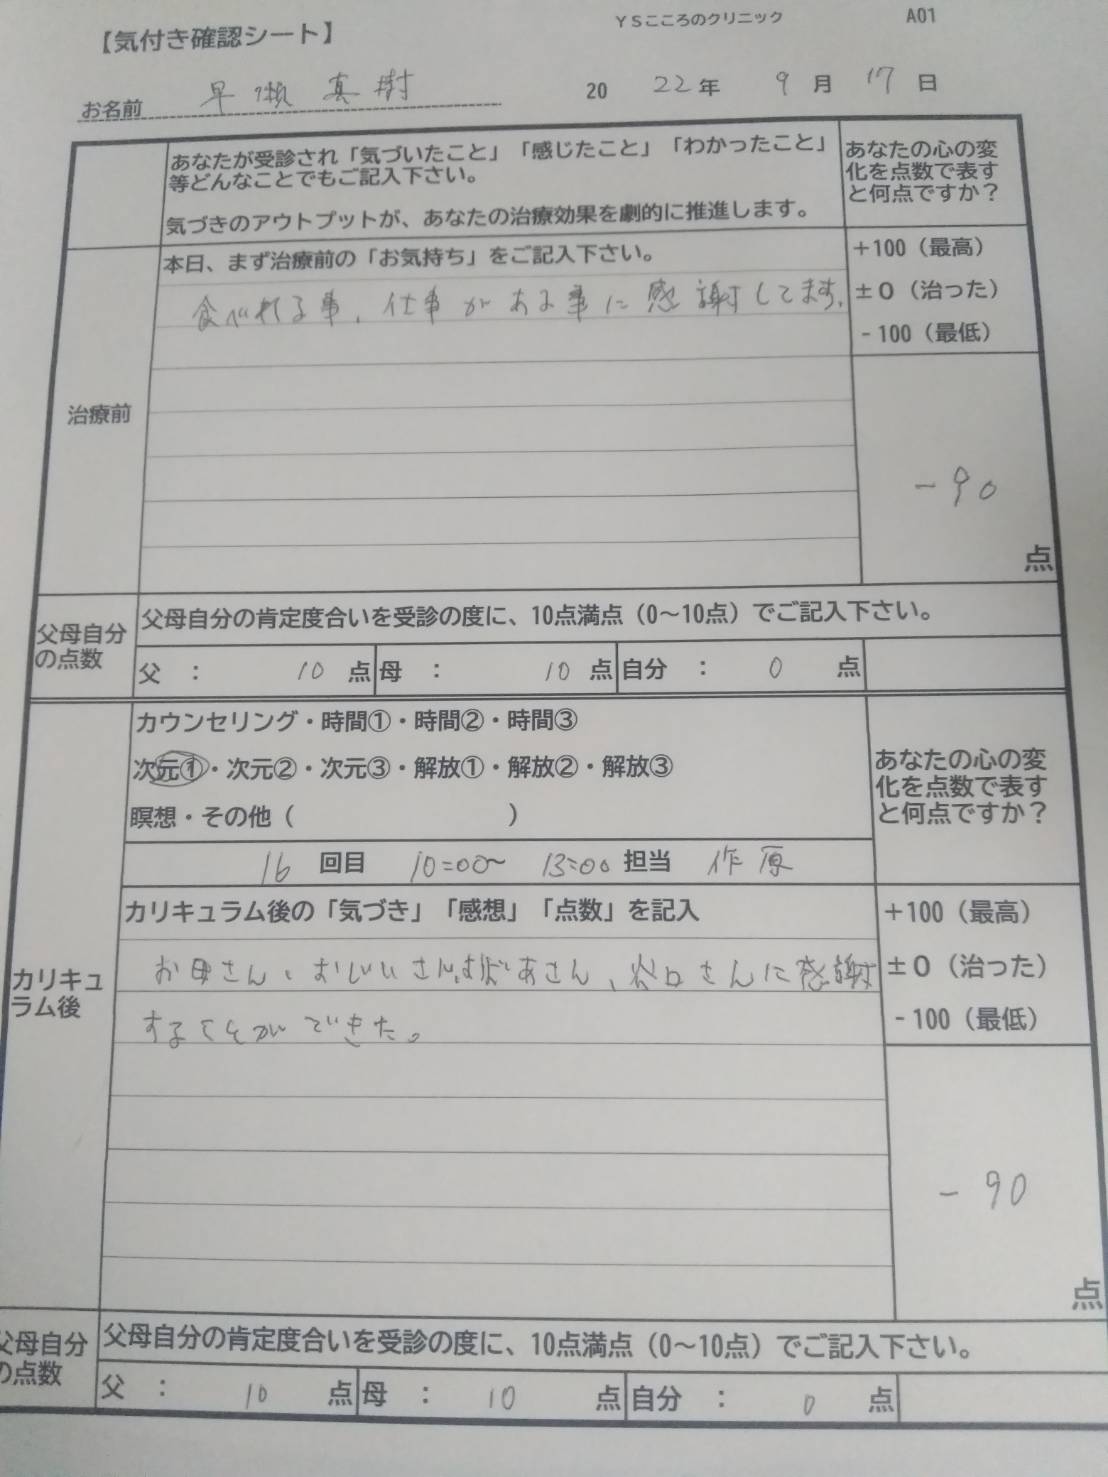 YSこころのクリニック A01
【気付き確認シート】
お名前 早瀬 真樹 20 22年 9月 17日
あなたが受診され「気づいたこと」「感じたこと」「わかったこと」
等どんなことでもご記入下さい。
気づきのアウトプットが、あなたの治療効果を劇的に推進します。
あなたの心の変
化を点数で表す
と何点ですか？
治療前
本日、まず治療前の「お気持ち」をご記入下さい。
食べれる事、仕事がある事に感謝してます。
+100（最高）
±0（治った）
-100（最低）
-90
点
父母自分
の点数
父母自分の肯定度合いを受診の度に、10点満点（0～10点）でご記入下さい。
父 ： 10 点 母 ： 10 点 自分 ： 0 点
カリキュ
ラム後
カウンセリング・時間①・時間②・時間③
次元①・次元②・次元③・解放①・解放②・解放③
瞑想・その他（ ）
16 回目 10:00〜 13:00 担当 作原
あなたの心の変
化を点数で表す
と何点ですか？
カリキュラム後の「気づき」「感想」「点数」を記入
お母さん、おじいさん、おばあさん、谷口さんに感謝
することができた。
+100（最高）
±0（治った）
-100（最低）
-90
点
父母自分
の点数
父母自分の肯定度合いを受診の度に、10点満点（0～10点）でご記入下さい。
父 ： 10 点 母 ： 10 点 自分 ： 0 点